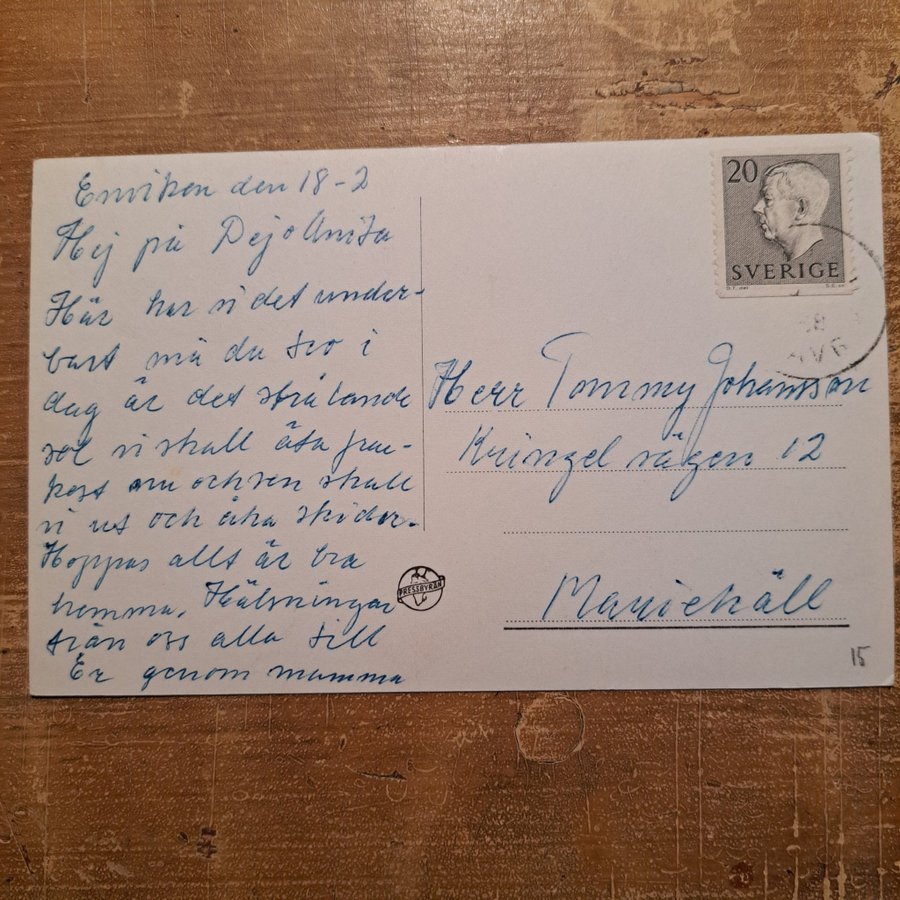 Enviken den 18-2
Hej på Dej o Anita
Här har vi det under-
bart må du tro i
dag är det strålande
sol vi skall äta fru-
kost nu och sen skall
vi ut och åka skidor.
Hoppas allt är bra
hemma. Hälsningar
från oss alla till
Er genom mamma
20
SVERIGE
Herr Tommy Johansson
Kringelvägen 12
Mariehäll
PRESSBYRÅN
15